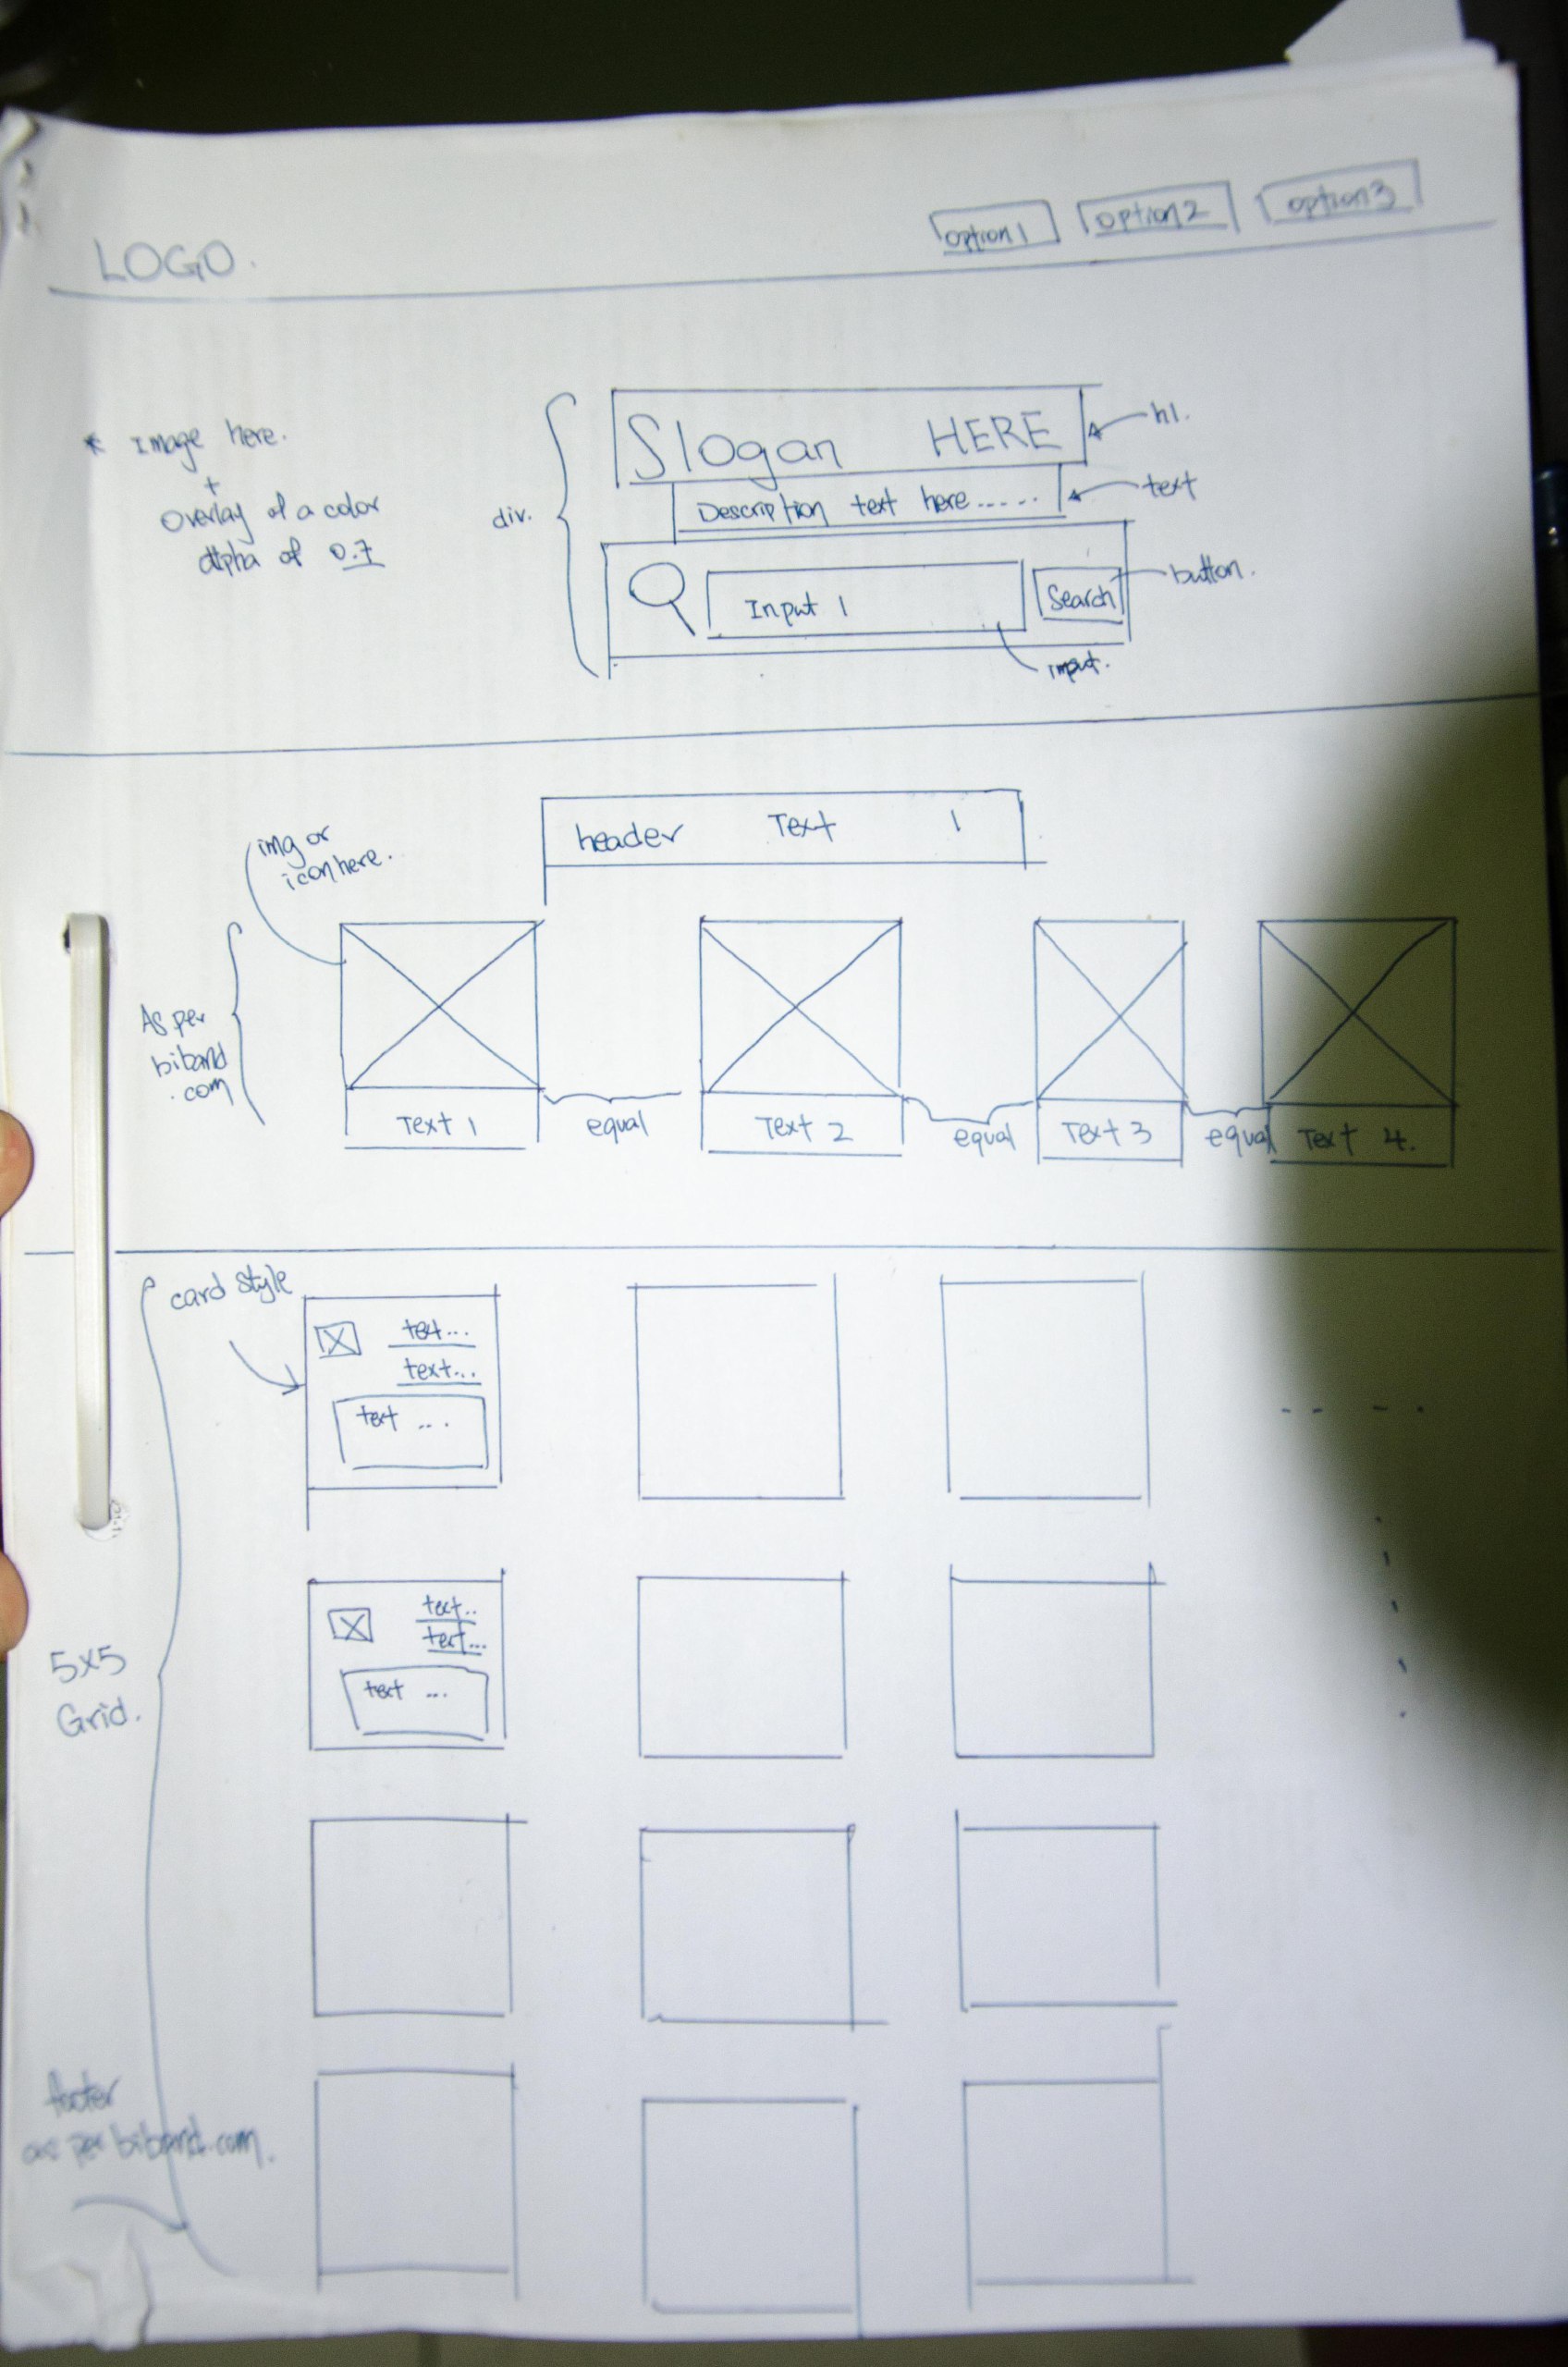 LOGO.
option1
option2
option3
* Image here.
+
Overlay of a color
alpha of 0.7
div.
Slogan HERE
h1.
Description text here.....
text
Input 1
Search
button.
input.
header Text 1
img or
icon here.
As per
biband
.com
Text 1
equal
Text 2
equal
Text 3
equal
Text 4.
card style
text...
text...
text ...
text..
text...
text ...
5x5
Grid.
footer
as per biband.com.